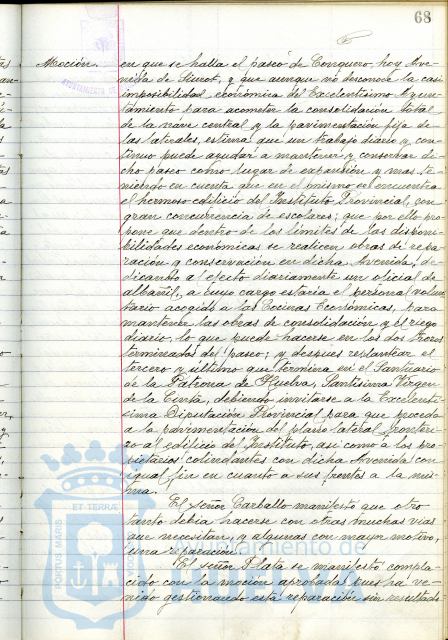 68
Moción.
en que se halla el paseo de Conquero, hoy Ave-
nida de Siurot, y que aunque no desconoce la casi
imposibilidad económica del Excelentísimo Ayun-
tamiento para acometer la consolidación total
de la nave central y la pavimentación fija de
las laterales, estima que un trabajo diario y con-
tinuo puede ayudar a mantener y conservar di-
cho paseo como lugar de expansión y mas, te-
niendo en cuenta que en el mismo se encuentra
el hermoso edificio del Instituto Provincial, con
gran concurrencia de escolares; que por ello pro-
pone que dentro de los límites de las disponi-
bilidades económicas se realicen obras de repa-
ración y conservación en dicha Avenida, de-
dicando al efecto diariamente un oficial de
albañil, a cuyo cargo estaría el personal volun-
tario acogido a las Cocinas Económicas, para
mantener las obras de consolidación y el riego
diario, lo que puede hacerse en los dos trozos
terminados del paseo; y despues replantear el
tercero y último que termina en el Santuario
de la Patrona de Huelva, Santísima Virgen
de la Cinta, debiendo invitarse a la Excelentí-
sima Diputación Provincial para que proceda
a la pavimentación del plano lateral fronteri-
zo al edificio del Instituto, asi como a los pro-
pietarios colindantes con dicha Avenida con
igual fin en cuanto a sus frentes a la mis-
ma.
El señor Carballo manifestó que otro
tanto debía hacerse con otras muchas vias
que necesitan, y algunas con mayor motivo,
una reparación.
El señor Plata se manifestó compla-
cido con la moción aprobada pues ha ve-
nido gestionando esta reparación sin resultado
PORTUS MARIS
ET TERRÆ
CUSTODIA
Ayuntamiento de